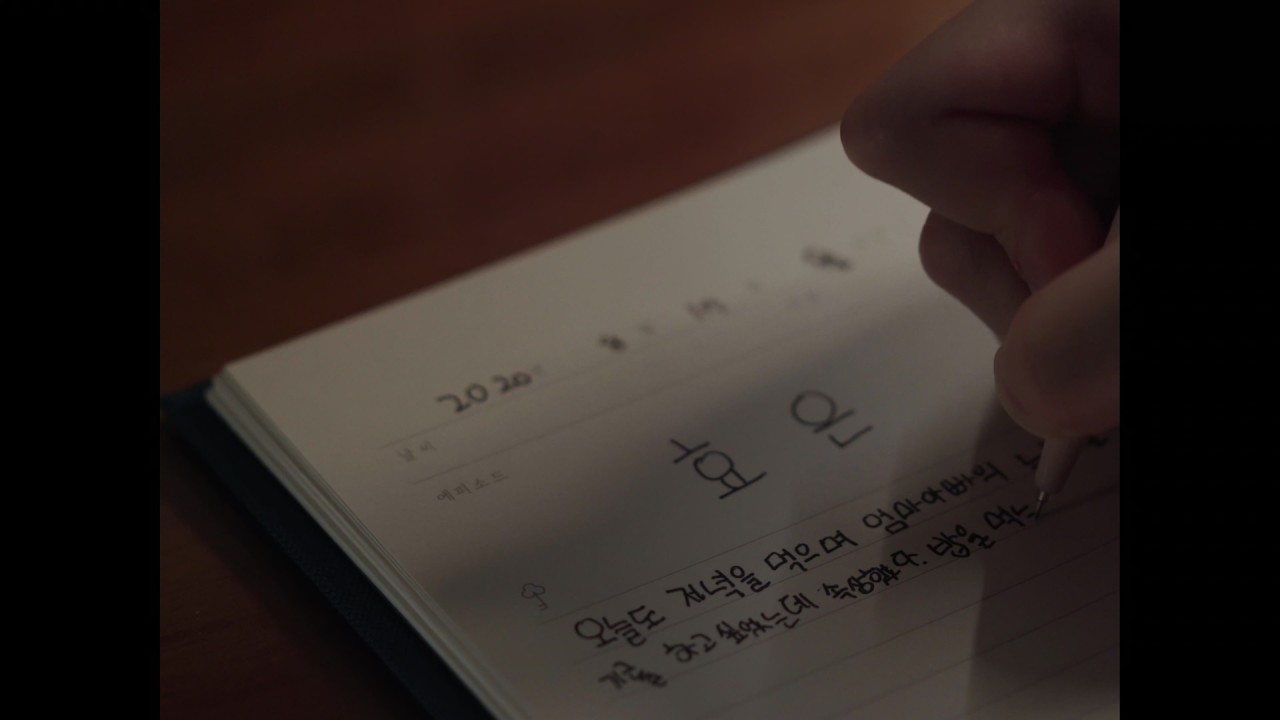 2020 8 19
날씨
에피소드
효 은
오늘도 저녁을 먹으며 엄마아빠의
하고 싶었는데 속상했다. 밥을 먹는